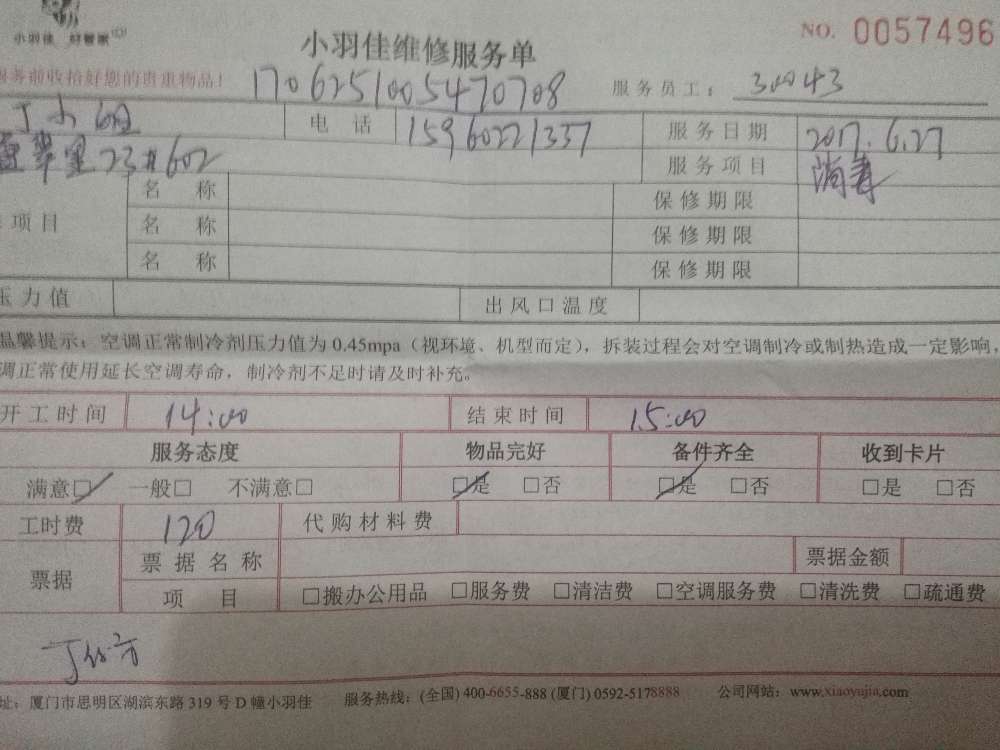 小羽佳 好管家
小羽佳维修服务单 NO. 0057496
服务前收拾好您的贵重物品! 1706251005470708 服务员工: 30043
丁小姐 电话 15960221337 服务日期 2017.6.27
翠里23#602 服务项目 消毒
项目 名称 保修期限
名称 保修期限
名称 保修期限
压力值 出风口温度
温馨提示:空调正常制冷剂压力值为0.45mpa(视环境、机型而定),拆装过程会对空调制冷或制热造成一定影响,
调正常使用延长空调寿命,制冷剂不足时请及时补充。
开工时间 14:00 结束时间 15:00
服务态度 物品完好 备件齐全 收到卡片
满意□ 一般□ 不满意□ □是 □否 □是 □否 □是 □否
工时费 120 代购材料费
票据 票据名称 票据金额
项目 □搬办公用品 □服务费 □清洁费 □空调服务费 □清洗费 □疏通费
址:厦门市思明区湖滨东路319号D幢小羽佳 服务热线:(全国)400-6655-888 (厦门) 0592-5178888 公司网站:www.xiaoyujia.com